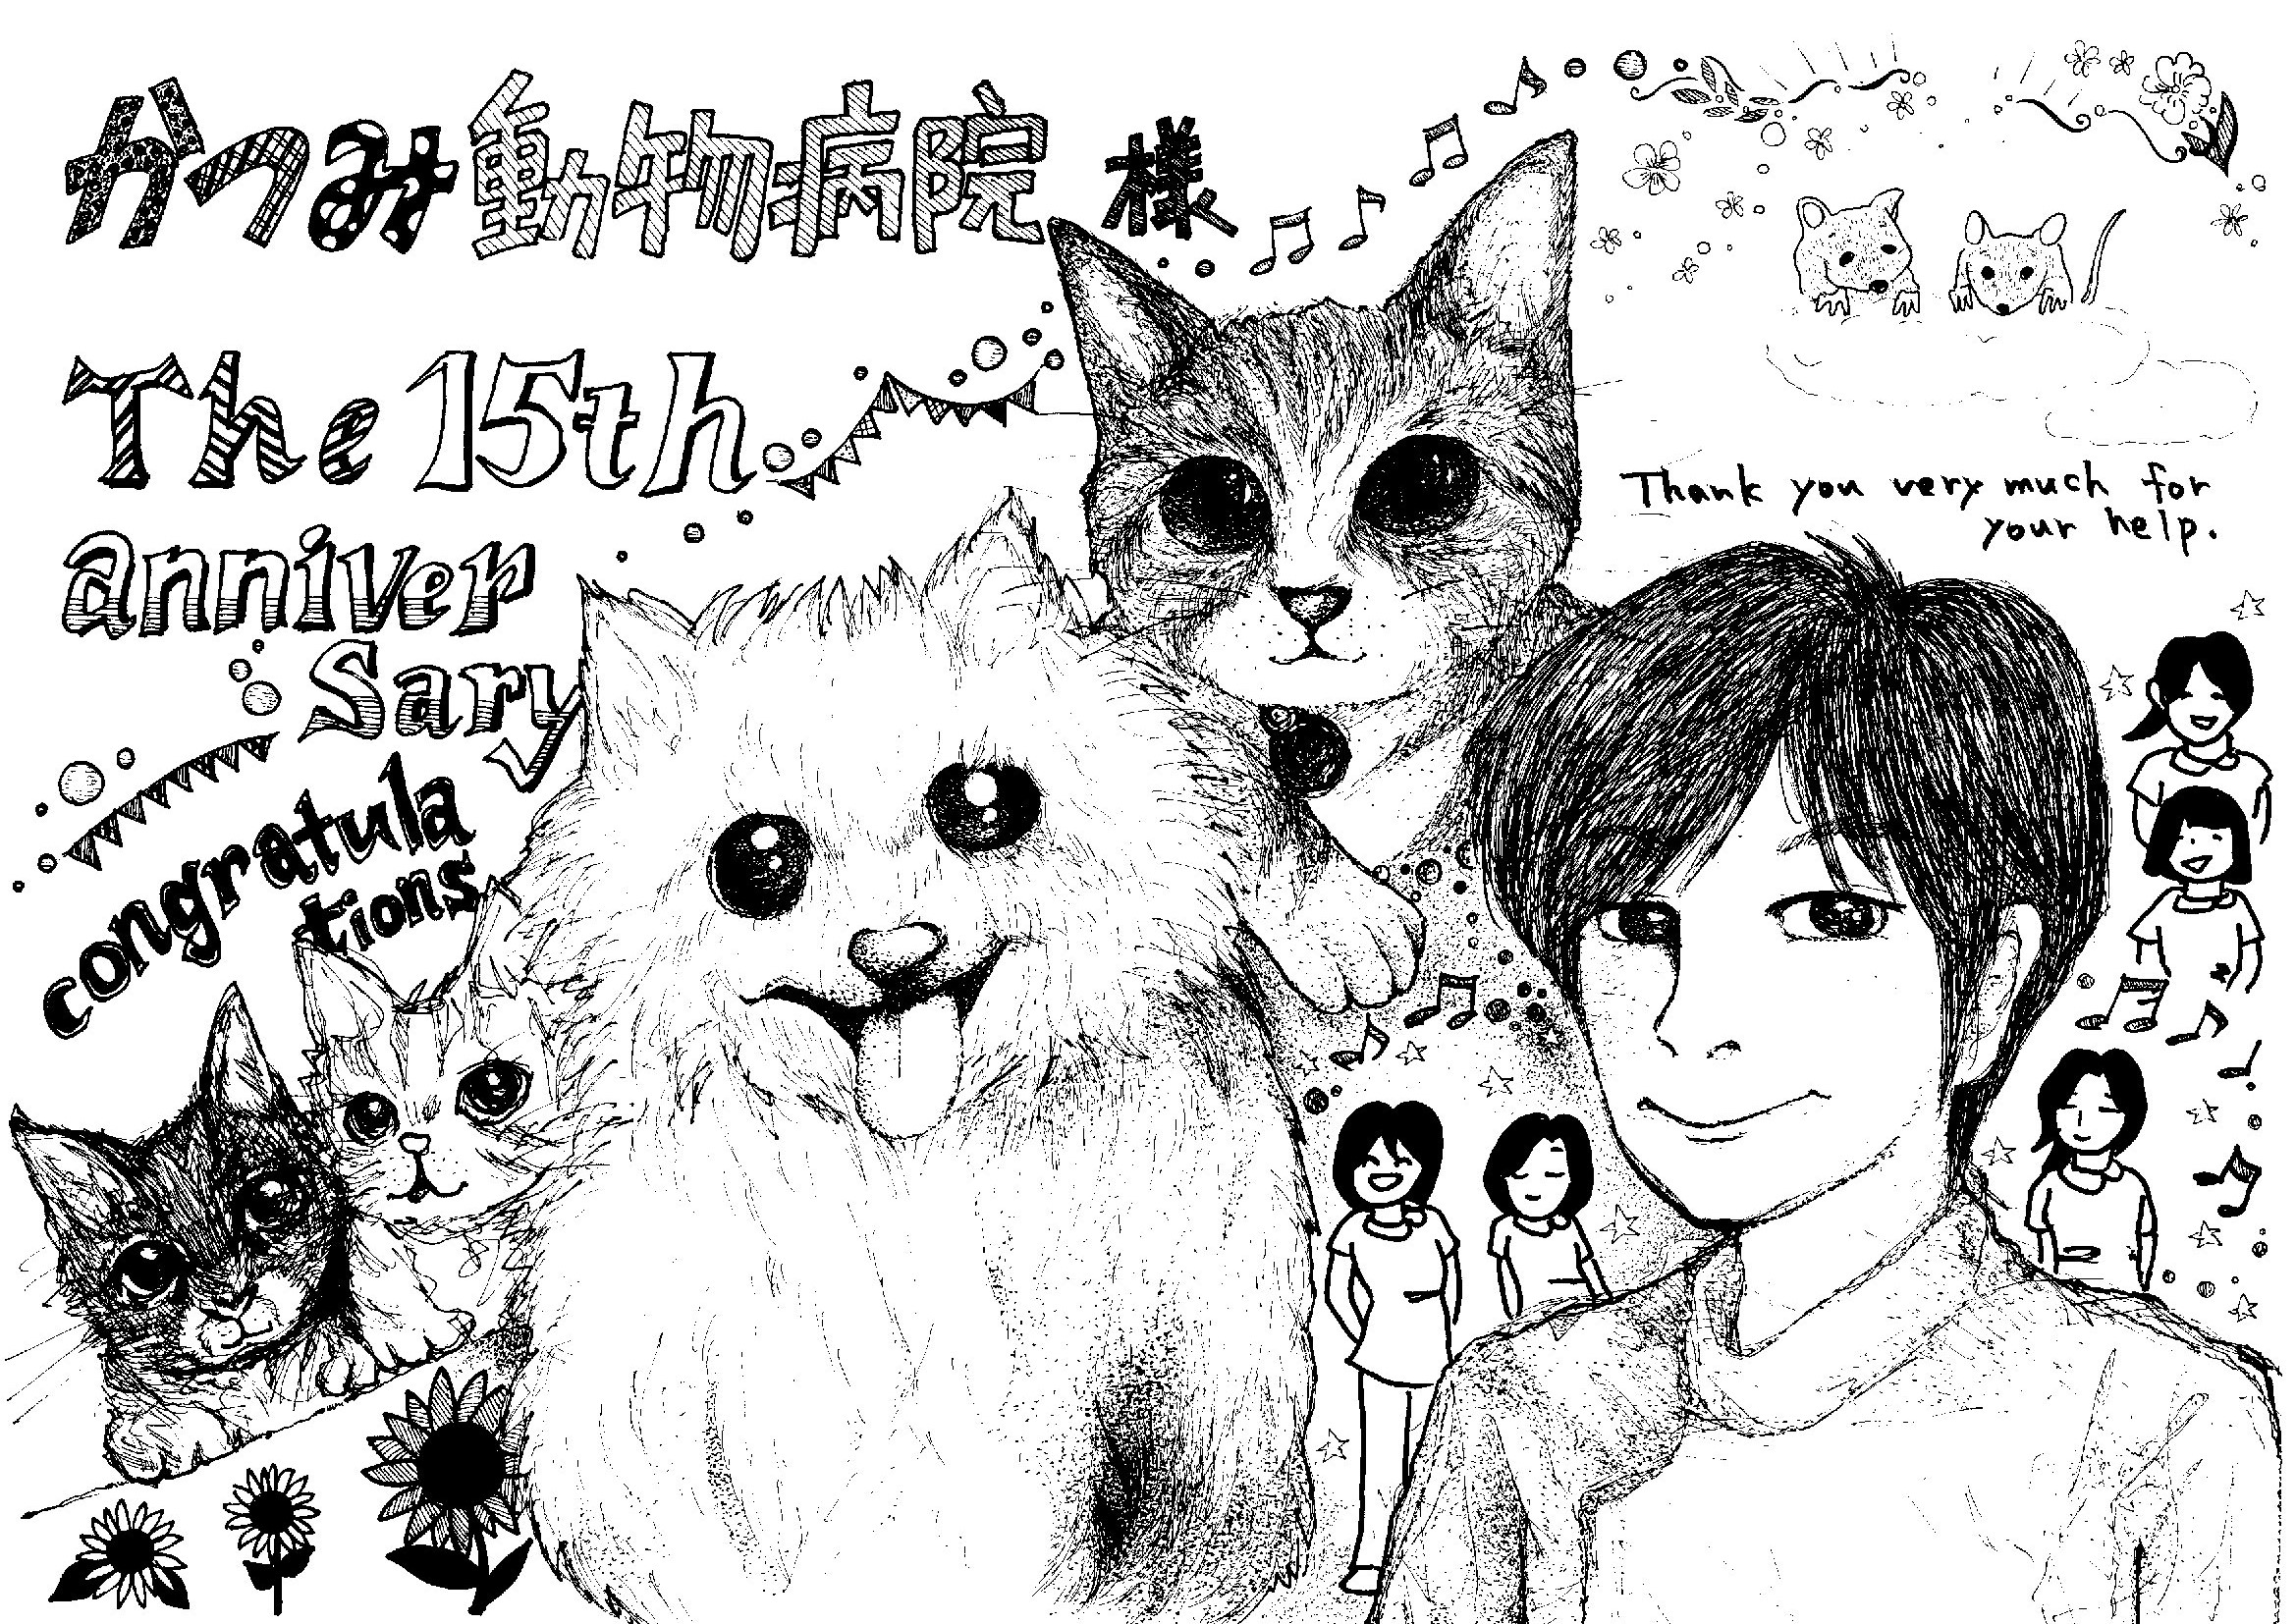 かつみ動物病院 様
The 15th
anniver
Sary
congratula
tions
Thank you very much for
your help.